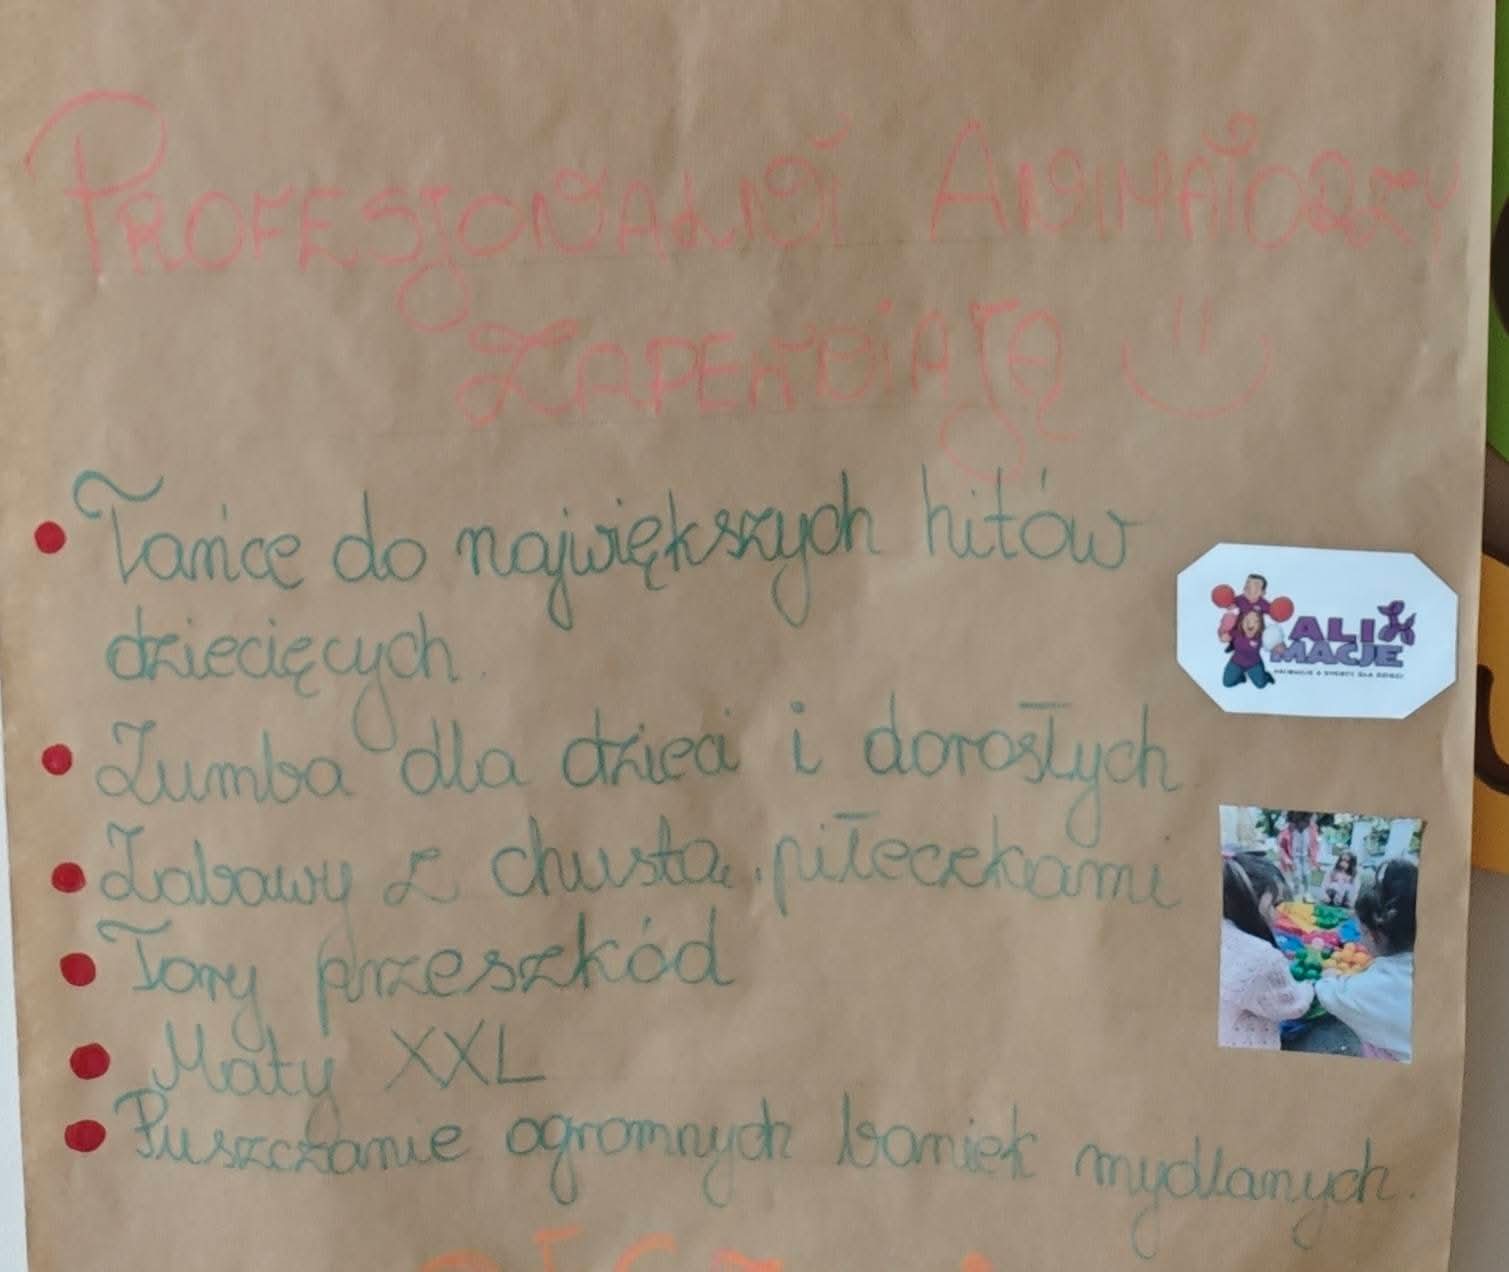 PROFESJONALNI ANIMATORZY
ZAPEWNIAJĄ
Tańce do największych hitów
dziecięcych.
Zumba dla dzieci i dorosłych
Zabawy z chustą, piłeczkami
Tory przeszkód
Maty XXL
Puszczanie ogromnych baniek mydlanych.
ALI
MACJE